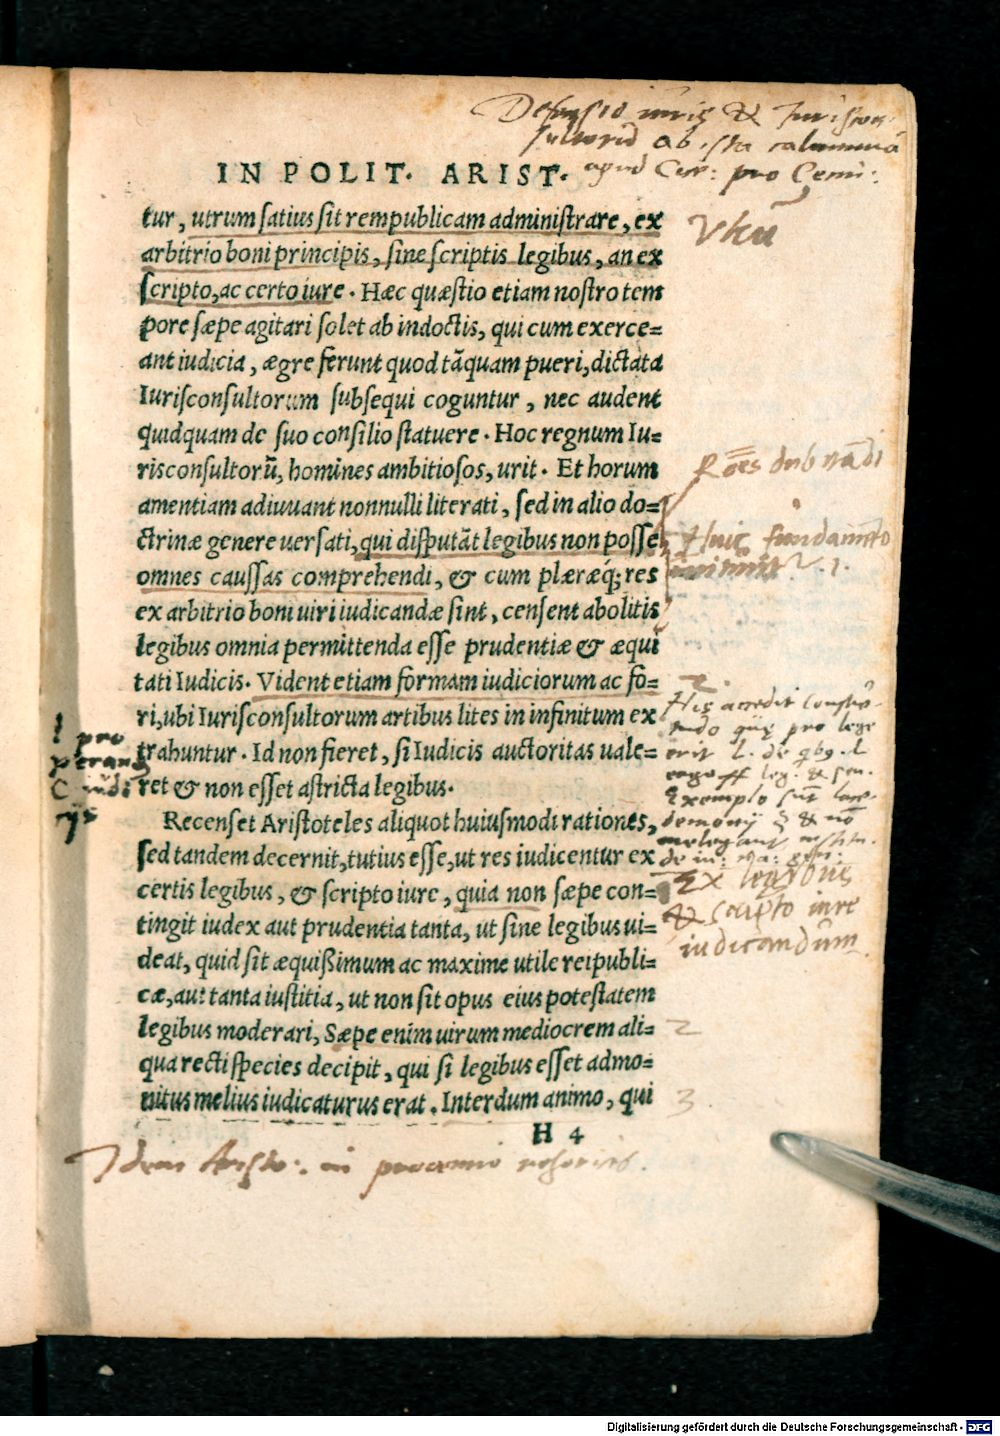 Defensio iuris & Iuriscon-
sultorum ab ista calumnia
apud Cic: pro Cecin:
IN POLIT. ARIST.
tur, utrum satius sit rempublicam administrare, ex
arbitrio boni principis, sine scriptis legibus, an ex
scripto, ac certo iure. Hæc quæstio etiam nostro tem
pore sæpe agitari solet ab indoctis, qui cum exerce=
ant iudicia, ægre ferunt quod tāquam pueri, dictata
Iurisconsultorum subsequi coguntur, nec audent
quidquam de suo consilio statuere. Hoc regnum Iu=
risconsultorū, homines ambitiosos, urit. Et horum
amentiam adiuuant nonnulli literati, sed in alio do=
ctrinæ genere uersati, qui disputāt legibus non posse
omnes caussas comprehendi, & cum plæræq; res
ex arbitrio boni uiri iudicandæ sint, censent abolitis
legibus omnia permittenda esse prudentiæ & æqui
tati Iudicis. Vident etiam formam iudiciorum ac fo=
ri, ubi Iurisconsultorum artibus lites in infinitum ex
trahuntur. Id non fieret, si Iudicis auctoritas uale=
ret & non esset astricta legibus.
Recenset Aristoteles aliquot huiusmodi rationes,
sed tandem decernit, tutius esse, ut res iudicentur ex
certis legibus, & scripto iure, quia non sæpe con=
tingit iudex aut prudentia tanta, ut sine legibus ui=
deat, quid sit æquißimum ac maxime utile reipubli=
cæ, aut tanta iustitia, ut non sit opus eius potestatem
legibus moderari, Sæpe enim uirum mediocrem ali=
qua recti species decipit, qui si legibus esset admo=
nitus melius iudicaturus erat. Interdum animo, qui
H 4
Vtrū
Rōes dubitādi
Huic fundamēto
1.
2
His accedit
pro lege
erit l. de qbg. l.
leg. & sen.
Exemplo
& nō
Ex legibus
& scripto iure
iudicandum
2
3
l pro
perand
C iudi
ijs
Idem Aristo: in prooemio rhetorices.
Digitalisierung gefördert durch die Deutsche Forschungsgemeinschaft - DFG